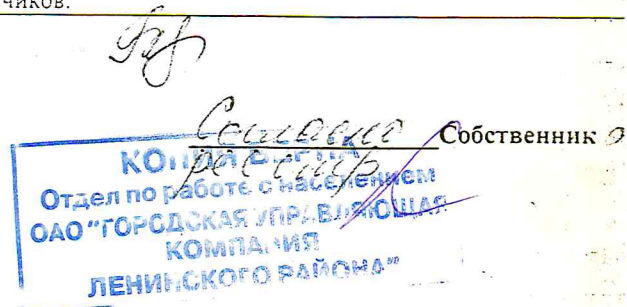 чиков.
Согласно Собственник
КОПИЯ ВЕРНА
реестр
Отдел по работе с населением
ОАО "ГОРОДСКАЯ УПРАВЛЯЮЩАЯ
КОМПАНИЯ
ЛЕНИНСКОГО РАЙОНА"